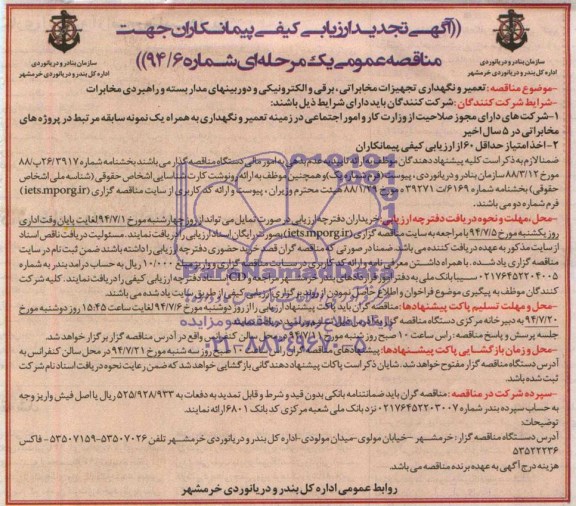 ((آگهی تجدید ارزیابی کیفی پیمانکاران جهت
مناقصه عمومی یک مرحله‌ای شماره ۹۴/۶))
سازمان بنادر و دریانوردی
اداره کل بندر و دریانوردی خرمشهر
سازمان بنادر و دریانوردی
اداره کل بندر و دریانوردی خرمشهر
-موضوع مناقصه: تعمیر و نگهداری تجهیزات مخابراتی، برقی و الکترونیکی و دوربینهای مدار بسته و راهبردی مخابرات
-شرایط شرکت کنندگان: شرکت کنندگان باید دارای شرایط ذیل باشند:
۱-شرکت‌های دارای مجوز صلاحیت از وزارت کار و امور اجتماعی در زمینه تعمیر و نگهداری به همراه یک نمونه سابقه مرتبط در پروژه های
مخابراتی در ۵ سال اخیر
۲-اخذ امتیاز حداقل ۶۰ از ارزیابی کیفی پیمانکاران
ضمنا لازم به ذکر است کلیه پیشنهاد دهندگان موظف به مالی دستگاه مناقصه گذار می باشند بخشنامه شماره
مورخ ۸۸/۳/۱۲ سازمان امور و همچنین موظف به ارائه رونوشت کارت شناسایی اشخاص حقوقی (شناسه ملی اشخاص
حقوقی) بخشنامه شماره هیئت محترم وزیران، پیوست و ارائه کد کاربری از سایت مناقصه گزاری (iets.mporg.ir)
فرم شماره دو می باشند.
-محل، مهلت و نحوه دریافت دفترچه ارزیابی: خریداران دفترچه ارزیابی در صورت تمایل می توانند از روز چهارشنبه مورخ ۹۴/۷/۱ لغایت پایان وقت اداری
روز یکشنبه مورخ ۹۴/۷/۵ با مراجعه به سایت مناقصه گزاری (iets.mporg.ir) بصورت رایگان اسناد ارزیابی را دریافت نمایند. مسئولیت دریافت ناقص اسناد
از سایت مذکور به عهده دریافت کننده می باشد. ضمنا در صورتی که مناقصه گران قصد خرید حضوری دفترچه ارزیابی را داشته باشند ضمن ثبت نام در سایت
مناقصه گزاری یاد شده، با همراه داشتن معرفی نامه و ارائه کد کاربری در سایت مناقصه گزاری و واریز مبلغ ۱۰۰/۰۰۰ ریال به حساب درآمد بندر به شماره
۰۲۱۷۶۴۵۲۲۰۴۰۰۵ سیبا بانک ملی دفترچه ارزیابی کیفی را دریافت نمایند. کلیه شرکت
کنندگان موظف به پیگیری موضوع فراخوان و اطلاع برگزاری ارزیابی کیفی از طریق سایت یاد شده می باشند.
-محل و مهلت تسلیم پاکت پیشنهادها: مناقصه گران باید پاکت پیشنهاد ارزیابی را از روز دوشنبه مورخ ۹۴/۷/۶ لغایت ساعت ۱۵:۴۵ روز دوشنبه مورخ
۹۴/۷/۲۰ به دبیرخانه مرکزی دستگاه مناقصه گزار
جلسه پرسش و پاسخ مناقصه: راس ساعت ۱۰ صبح روز شنبه مورخ در محل سالن کنفرانس واقع در آدرس مناقصه گزار برگزار خواهد شد.
-محل و زمان بازگشایی پاکت پیشنهادها: پیشنهادهای مناقصه گران راس ساعت ۱۰ صبح روز سه شنبه مورخ ۹۴/۷/۲۱ در محل سالن کنفرانس به
آدرس دستگاه مناقصه گزار مفتوح خواهد شد. شایان ذکر است پاکات پیشنهاد دهندگانی بازگشایی خواهد شد که ضمن رعایت نحوه دریافت اسناد نام شرکت
ثبت شده باشد.
-سپرده شرکت در مناقصه: مناقصه گران باید ضمانتنامه بانکی بدون قید و شرط و قابل تمدید به دفعات به ۵۲۵/۹۲۸/۹۳۳ ریال یا اصل فیش واریز وجه
به حساب سپرده بندر شماره ۰۲۱۷۶۴۵۲۲۰۳۰۰۷ نزد بانک ملی شعبه مرکزی کد بانک ۶۸۰۱ ارائه نمایند.
توضیحات:
آدرس دستگاه مناقصه گزار: خرمشهر -خیابان مولوی-میدان مولودی-اداره کل بندر و دریانوردی خرمشهر تلفن ۵۳۵۰۷۰۲۶-۵۳۵۰۷۱۵۹ - فاکس
۵۳۵۲۲۲۳۶
هزینه درج آگهی به عهده برنده مناقصه می باشد.
روابط عمومی اداره کل بندر و دریانوردی خرمشهر
ParsNamadData
۰۲۱-۸۸۳۴۹۶۷۰-۵